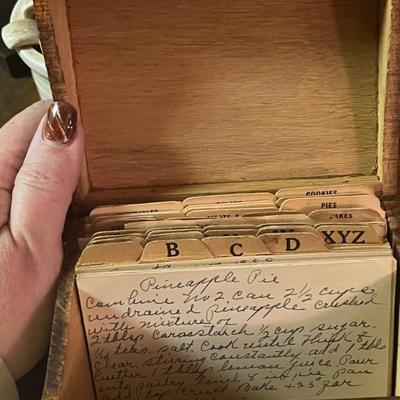 COOKIES
PIES
CAKES
B C D XYZ
Pineapple Pie
Combine No 2 can 2 1/2 cups
undrained Pineapple crushed
with mixture of
2 tblsp cornstarch 1/2 cup sugar.
1/4 teas. salt. Cook until thick &
clear, stirring constantly. add 1 tbls
butter 1 tblsp lemon juice Pour
into pastry lined 8 in pie pan
add top crust Bake 425° for